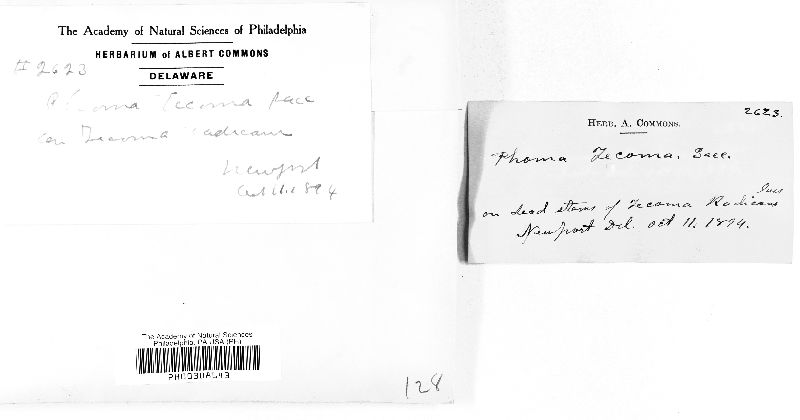 The Academy of Natural Sciences of Philadelphia
HERBARIUM of ALBERT COMMONS
DELAWARE
# 2623
Phoma Tecoma Sacc
on Tecoma radicans
Newport
Oct 11. 1894
The Academy of Natural Sciences
Philadelphia, PA USA (PH)
128
2623.
HERB. A. COMMONS.
Phoma Tecoma. Sacc.
on dead stems of Tecoma Radicans
Newport Del. Oct 11. 1894.